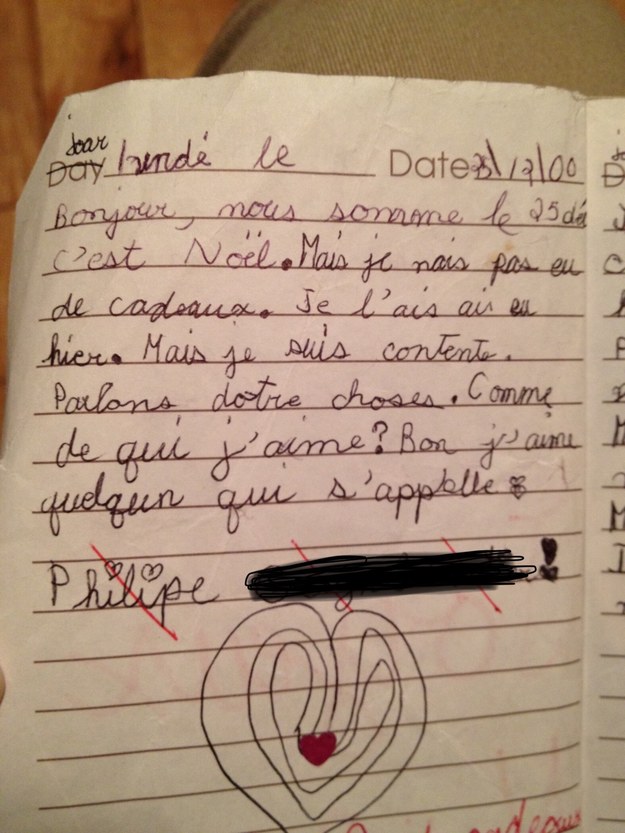 jour
Day lundé le Date 25/12/00
Bonjour, nous somme le 25 dé
c'est Noël. Mais je nais pas eu
de cadeaux. Je l'ais ais eu
hier. Mais je suis contente.
Parlons dotre choses. Comme
de qui j'aime? Bon j'aime
quelqun qui s'appelle
Philipe !